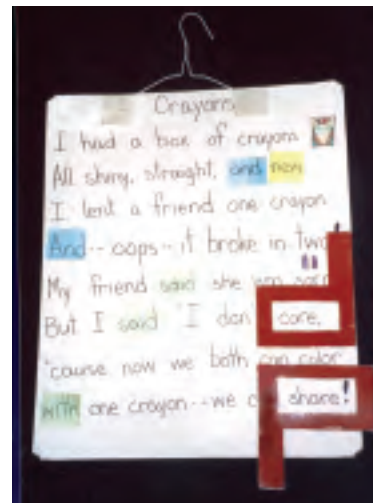 Crayons
I had a box of crayons
All shiny, straight, and new
I lent a friend one crayon
And-- oops-- it broke in two!
My friend said she was
But I said "I don care,
'cause now we both can color
with one crayon--we c share!